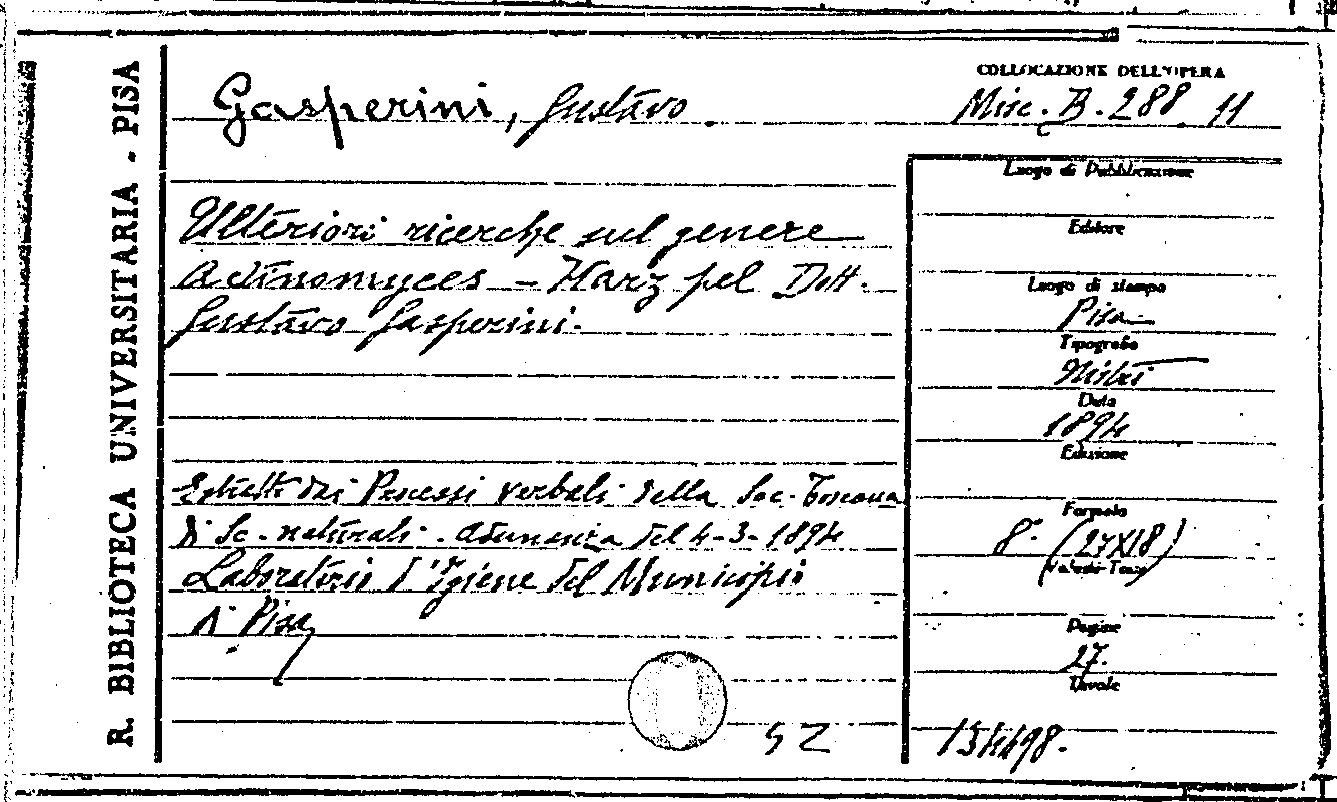 R. BIBLIOTECA UNIVERSITARIA - PISA
Gasperini, Gustavo.
COLLOCAZIONE DELL'OPERA
Misc. B. 288. 11
Ulteriori ricerche sul genere
Actinomyces - Harz pel Dott.
Gustavo Gasperini.
Estratto dai Processi verbali della Soc. Toscana
di Sc. naturali. Adunanza del 4-3-1894
Laboratorio d'Igiene del Municipio
di Pisa
SZ
Luogo di Pubblicazione
Editore
Luogo di stampa
Pisa
Tipografo
Nistri
Data
1894
Edizione
Formato
8° (27X18)
Pagine
27.
Tavole